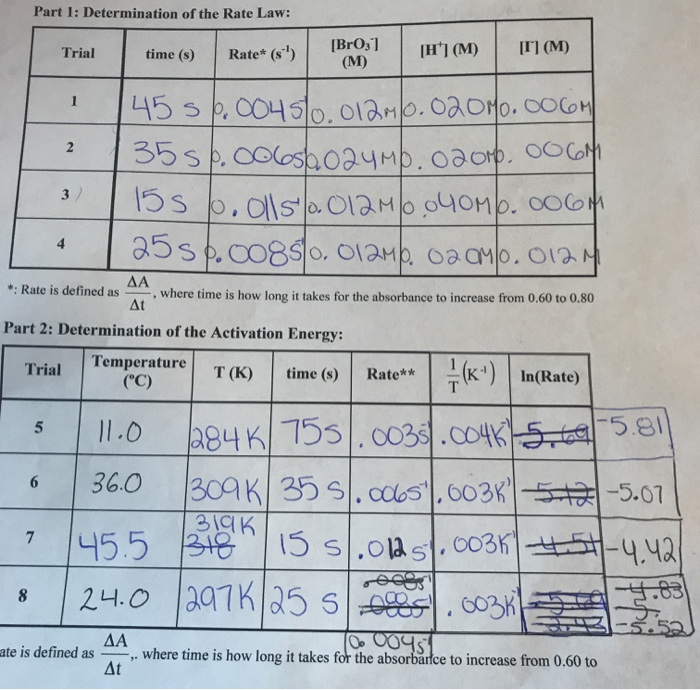 Part 1: Determination of the Rate Law:
Trial time (s) Rate* (s⁻¹) [BrO₃⁻] (M) [H⁺] (M) [I⁻] (M)
1 45 s 0.004s⁻¹ 0.012M 0.020M 0.006M
2 35 s 0.006s⁻¹ 0.024M 0.020M 0.006M
3 15 s 0.011s⁻¹ 0.012M 0.040M 0.006M
4 25 s 0.008s⁻¹ 0.012M 0.020M 0.012M
*: Rate is defined as ΔA/Δt, where time is how long it takes for the absorbance to increase from 0.60 to 0.80
Part 2: Determination of the Activation Energy:
Trial Temperature (°C) T (K) time (s) Rate** 1/T (K⁻¹) ln(Rate)
5 11.0 284K 75s .003s⁻¹ .004K⁻¹ -5.69 -5.81
6 36.0 309K 35 s .006s⁻¹ .003K⁻¹ -5.12 -5.07
7 45.5 319K 318 15 s .012s⁻¹ .003K⁻¹ -4.51 -4.42
8 24.0 297K 25 s .008s⁻¹ 0.004s⁻¹ .003K⁻¹ -4.83 -5.52
ate is defined as ΔA/Δt,. where time is how long it takes for the absorbance to increase from 0.60 to